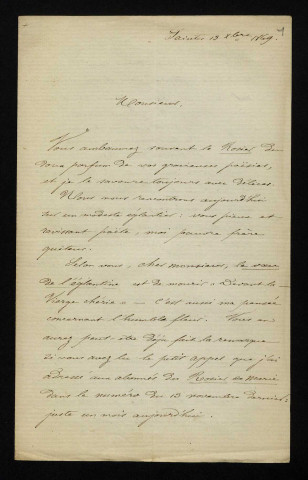 Saintes 13 Xbre 1869.
Monsieur,
Vous embaumez souvent le Rosier du
doux parfum de vos gracieuses poésies,
et je le savoure toujours avec délices.
Nous nous rencontrons aujourd'hui
sur un modeste églantier: vous pieux et
ravissant poète, moi pauvre frère
quêteur.
Selon vous, cher monsieur, le vœu
de l'églantine est de mourir « devant la
Vierge chérie » — c'est aussi ma pensée
concernant l'humble fleur. Vous en
aurez peut-être déjà fait la remarque
si vous avez lu le petit appel que j'ai
adressé aux abonnés du Rosier de Marie
dans le numéro du 13 novembre dernier,
juste un mois aujourd'hui.